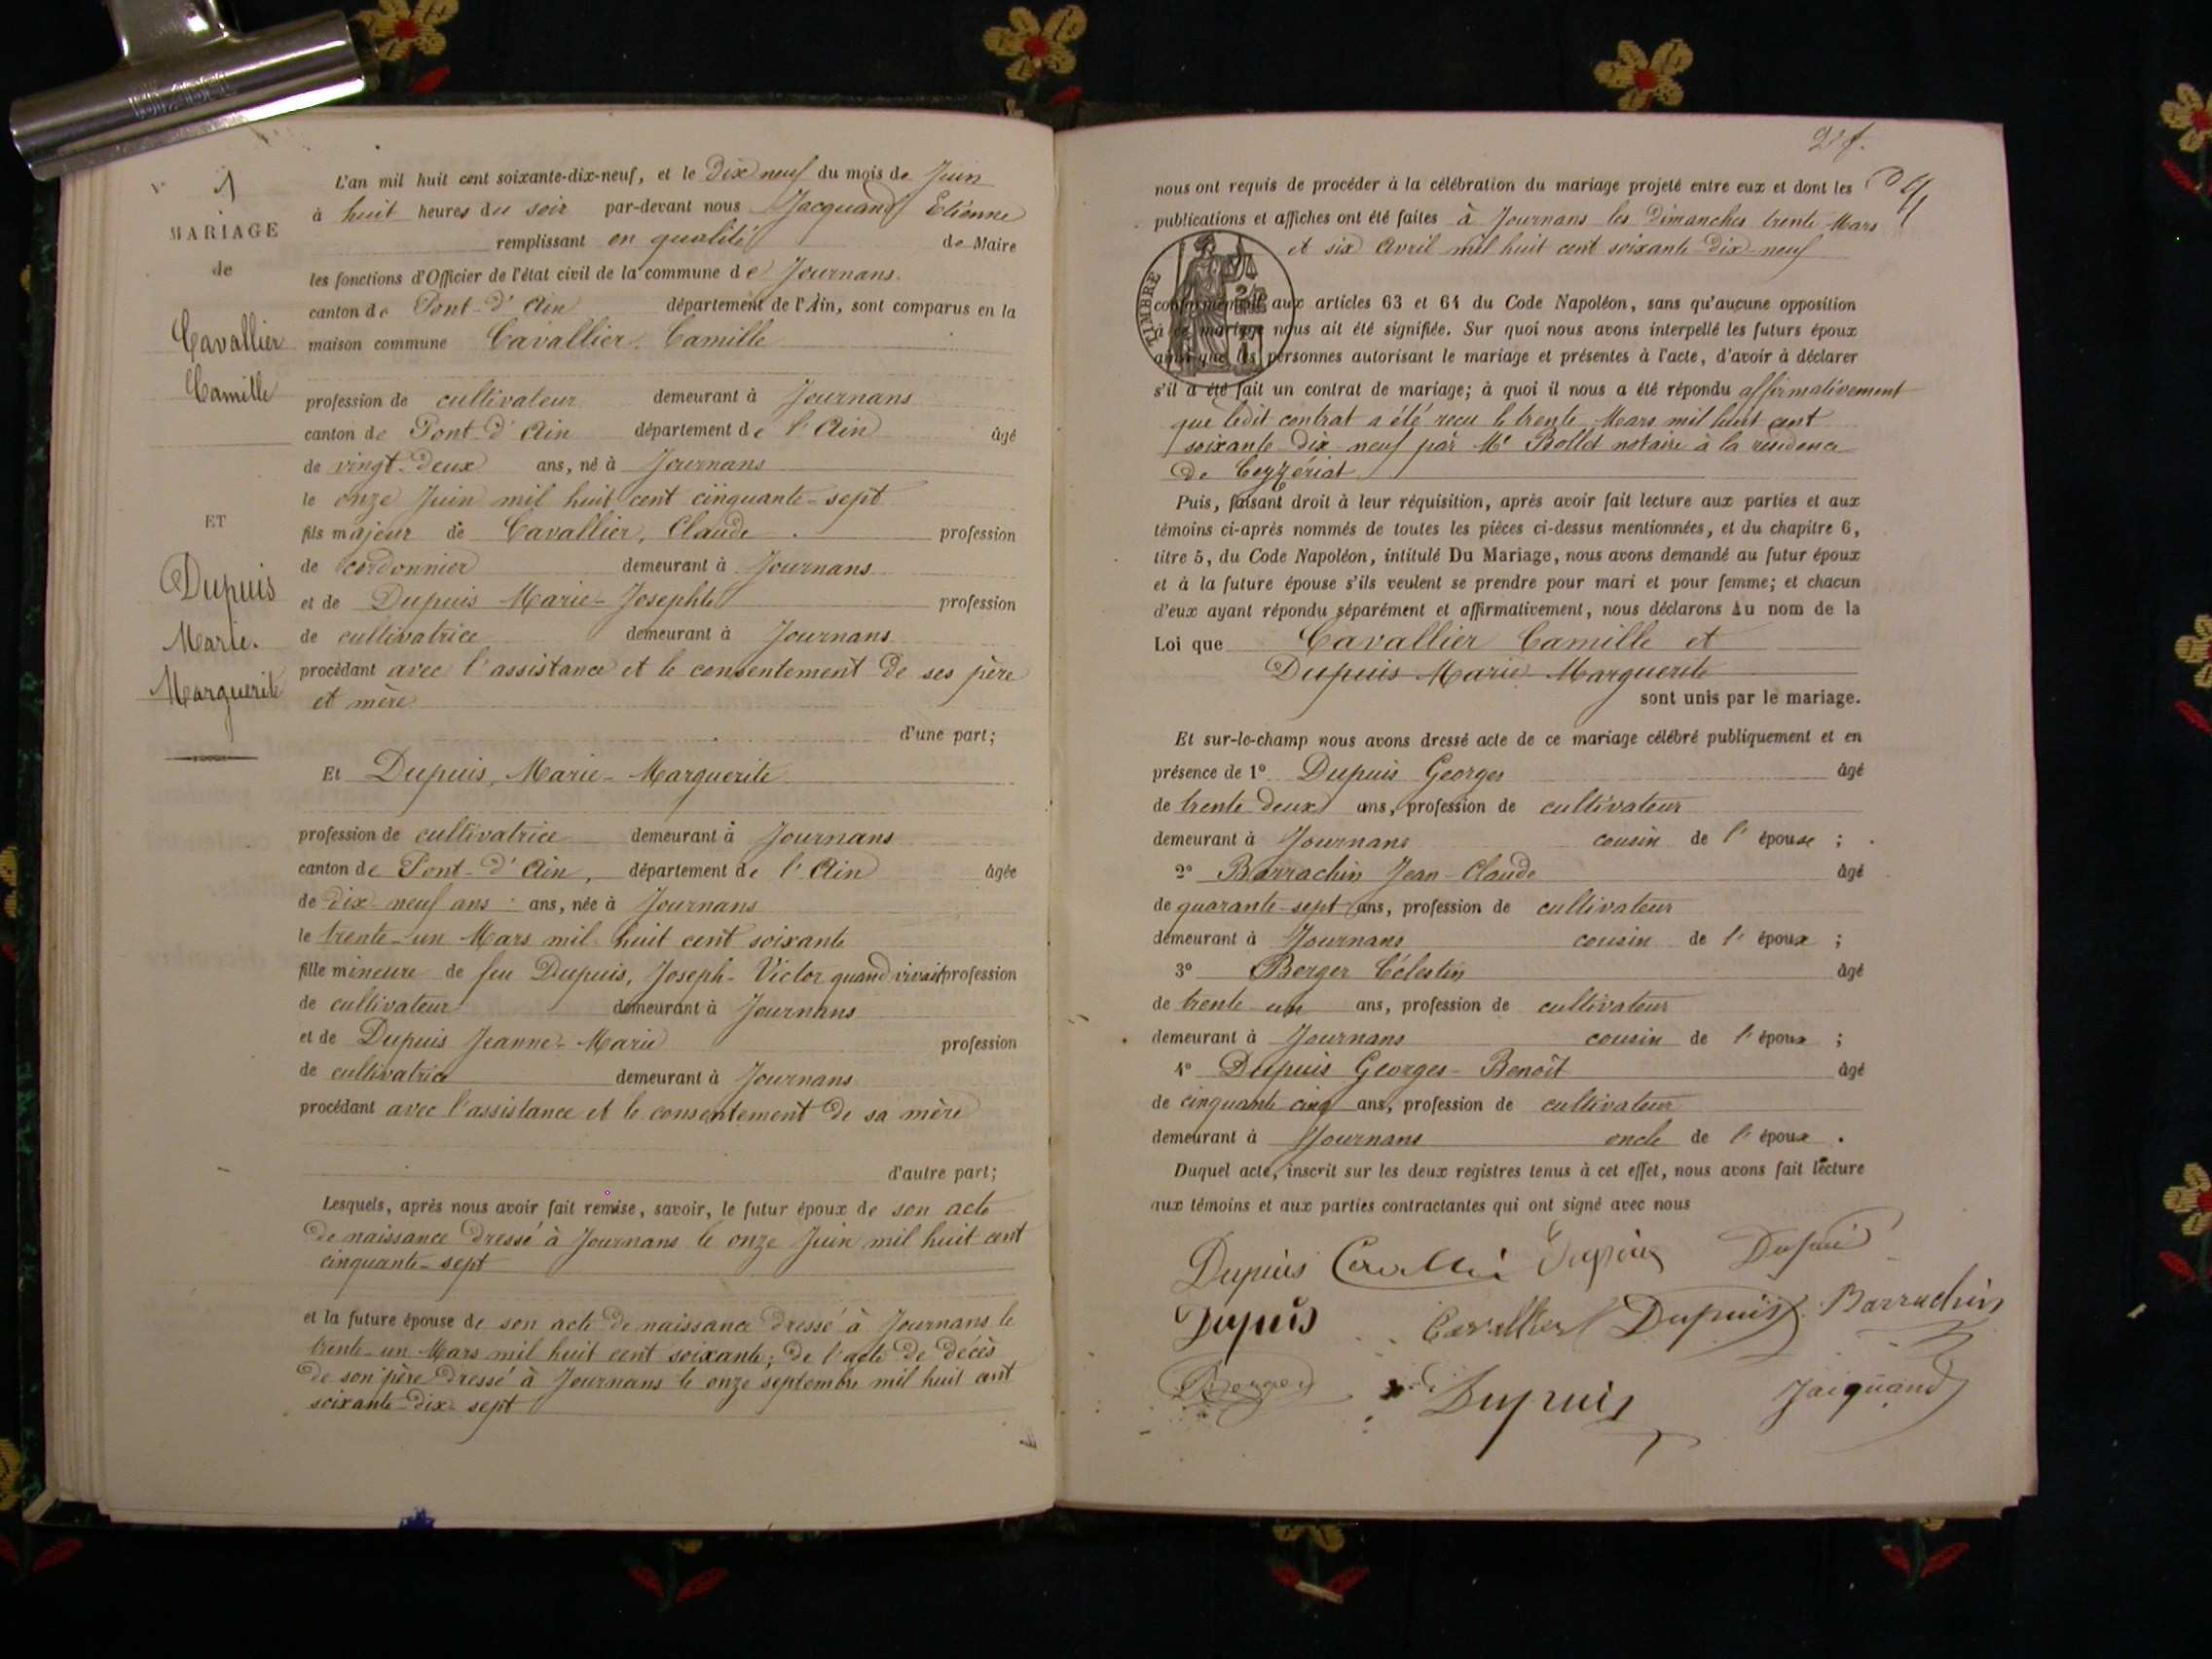 1
MARIAGE
de
Cavallier
Camille
ET
Dupuis
Marie.
Marguerite
L'an mil huit cent soixante-dix-neuf, et le Dix neuf du mois de Juin
à huit heures du soir par-devant nous Jacquand Etienne
remplissant en qualité de Maire
les fonctions d'Officier de l'état civil de la commune de Journans
canton de Pont-d'Ain département de l'Ain, sont comparus en la
maison commune Cavallier Camille
profession de cultivateur demeurant à Journans
canton de Pont-d'Ain département de l'Ain âgé
de vingt-deux ans, né à Journans
le onze Juin mil huit cent cinquante-sept
fils majeur de Cavallier, Claude profession
de cordonnier demeurant à Journans
et de Dupuis Marie-Josephte profession
de cultivatrice demeurant à Journans
procédant avec l'assistance et le consentement de ses père
et mère
d'une part;
Et Dupuis, Marie-Marguerite
profession de cultivatrice demeurant à Journans
canton de Pont-d'Ain, département de l'Ain âgée
de dix-neuf ans ans, née à Journans
le trente-un Mars mil huit cent soixante
fille mineure de feu Dupuis, Joseph-Victor quand vivait profession
de cultivateur demeurant à Journans
et de Dupuis Jeanne-Marie profession
de cultivatrice demeurant à Journans
procédant avec l'assistance et le consentement de sa mère
d'autre part;
Lesquels, après nous avoir fait remise, savoir, le futur époux de son acte
de naissance dressé à Journans le onze Juin mil huit cent
cinquante-sept
et la future épouse de son acte de naissance dressé à Journans le
trente-un Mars mil huit cent soixante; de l'acte de décès
de son père dressé à Journans le onze septembre mil huit cent
soixante-dix-sept
nous ont requis de procéder à la célébration du mariage projeté entre eux et dont les
publications et affiches ont été faites à Journans les dimanches trente Mars
et six Avril mil huit cent soixante dix-neuf
TIMBRE
conformément aux articles 63 et 64 du Code Napoléon, sans qu'aucune opposition
à ce mariage nous ait été signifiée. Sur quoi nous avons interpellé les futurs époux
ainsi que les personnes autorisant le mariage et présentes à l'acte, d'avoir à déclarer
s'il a été fait un contrat de mariage; à quoi il nous a été répondu affirmativement
que ledit contrat a été reçu le trente Mars mil huit cent
soixante dix neuf par Me Bollet notaire à la résidence
de Ceyzériat
Puis, faisant droit à leur réquisition, après avoir fait lecture aux parties et aux
témoins ci-après nommés de toutes les pièces ci-dessus mentionnées, et du chapitre 6,
titre 5, du Code Napoléon, intitulé Du Mariage, nous avons demandé au futur époux
et à la future épouse s'ils veulent se prendre pour mari et pour femme; et chacun
d'eux ayant répondu séparément et affirmativement, nous déclarons Au nom de la
Loi que Cavallier Camille et
Dupuis Marie Marguerite
sont unis par le mariage.
Et sur-le-champ nous avons dressé acte de ce mariage célébré publiquement et en
présence de 1° Dupuis Georges âgé
de trente deux ans, profession de cultivateur
demeurant à Journans cousin de l'épouse ;
2° Barrachin Jean-Claude âgé
de quarante-sept ans, profession de cultivateur
demeurant à Journans cousin de l'époux ;
3° Berger Célestin âgé
de trente un ans, profession de cultivateur
demeurant à Journans cousin de l'époux ;
4° Dupuis Georges-Benoît âgé
de cinquante cinq ans, profession de cultivateur
demeurant à Journans oncle de l'époux .
Duquel acte, inscrit sur les deux registres tenus à cet effet, nous avons fait lecture
aux témoins et aux parties contractantes qui ont signé avec nous
Dupuis Dupuis Dupuis
Dupuis Cavallier Dupuis Barrachin
Berger Dupuis Jacquand